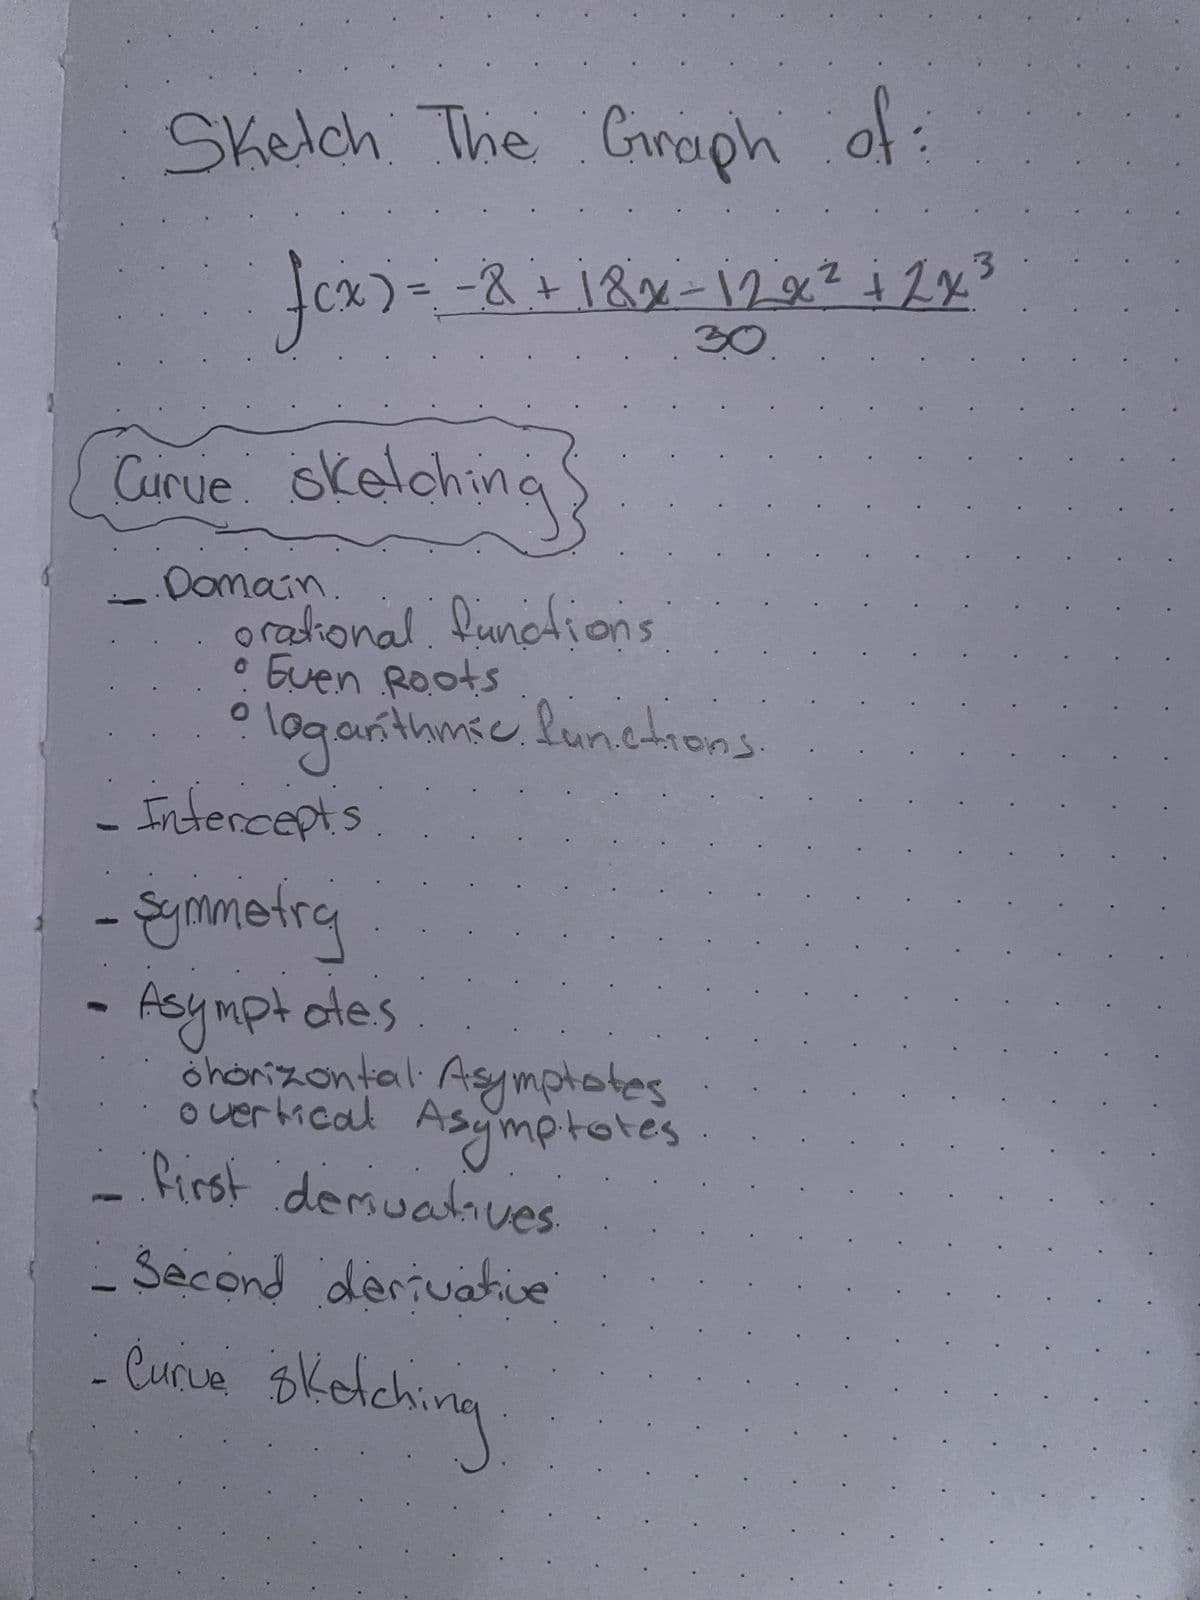 Sketch The Graph of:
f(x) = -8 + 18x - 12x² + 2x³
30
Curve sketching
- Domain.
o rational functions
o Even Roots
o logarithmic functions.
- Intercepts.
- Symmetry
- Asymptotes.
o horizontal Asymptotes
o vertical Asymptotes.
- first derivatives.
- Second derivative
- Curve sketching.